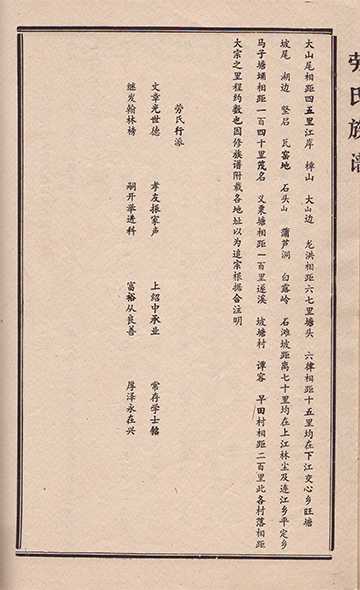 劳氏族谱
大山尾相距四五里江岸 樟山 大山边 龙洪相距六七里塘头 六律相距十五里均在下江交心乡旺塘
坡尾 湖边 竖石 瓦窑地 石头山 蒲芦洞 白露岭 石滩坡距离七十里均在上江林尘及连江乡平定乡
马子塘埇相距一百四十里茂名 义栗塘相距一百里遂溪 坡塘村 谭容 旱田村相距二百里此各村落相距
大宗之里程约数也因修族谱附载各地址以为追宗根据合注明
劳氏行派
文章光世德 孝友振家声 上绍中承业 常存学士馆
继发翰林榜 嗣开举进科 富裕从良善 厚泽永在兴